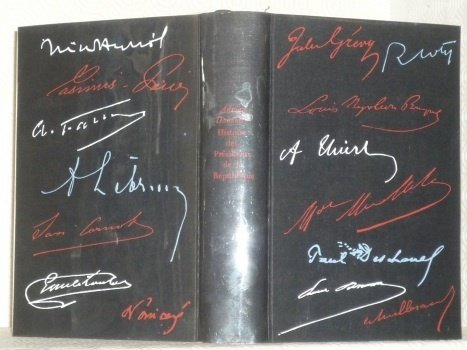 Vincent Auriol
Casimir-Perier
A. Lebrun
Sadi Carnot
Emile Loubet
Adrien
Dansette
Histoire
des
Présidents
de la
République
Jules Grévy
R Coty
Louis Napoléon
A Thiers
Mal Mac Mahon
Paul Deschanel